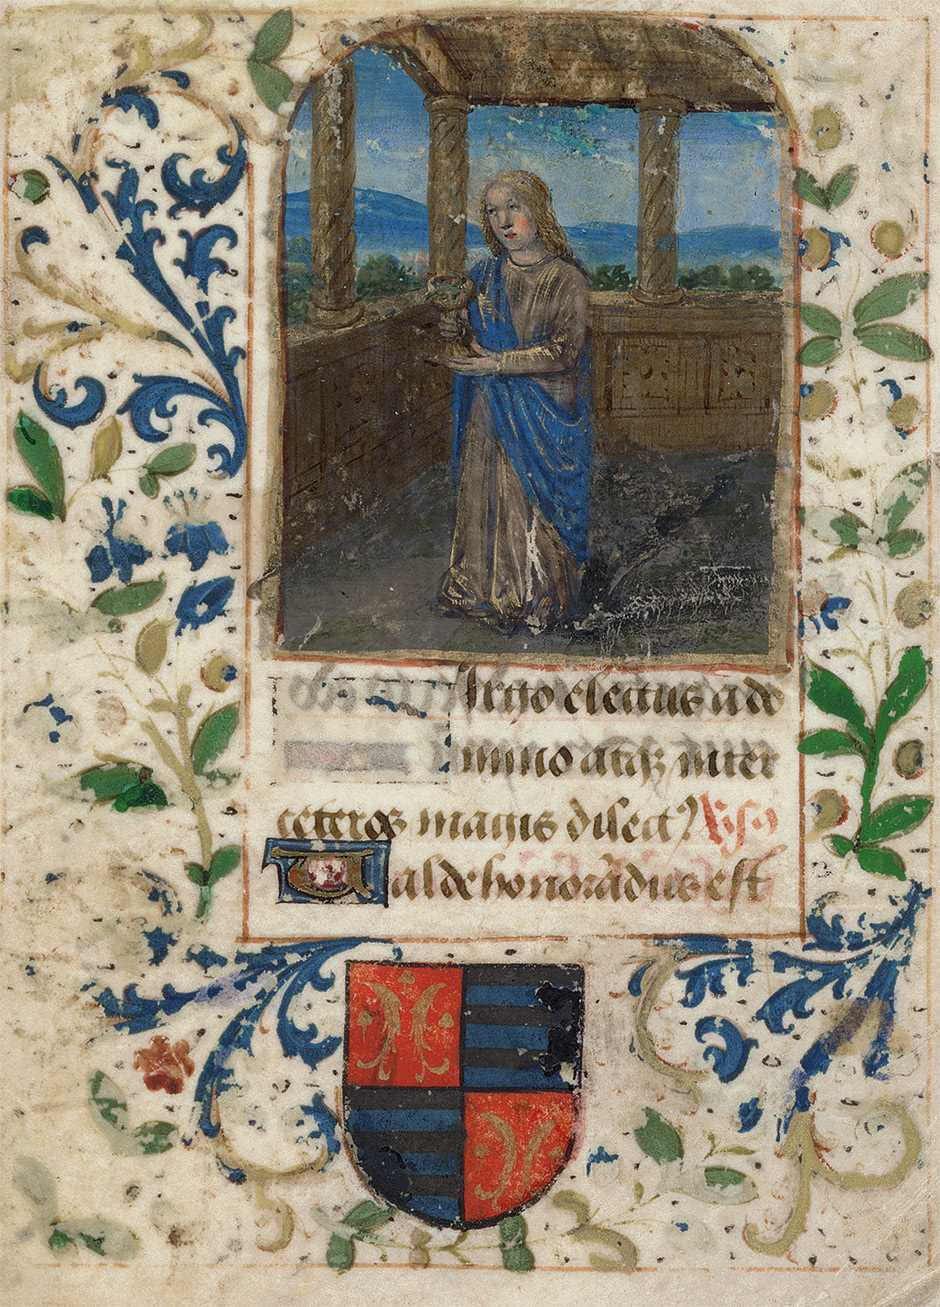 irgo electus a do
mino atqꝫ inter
ceteros magis dilectꝰ
Valde honorādus est